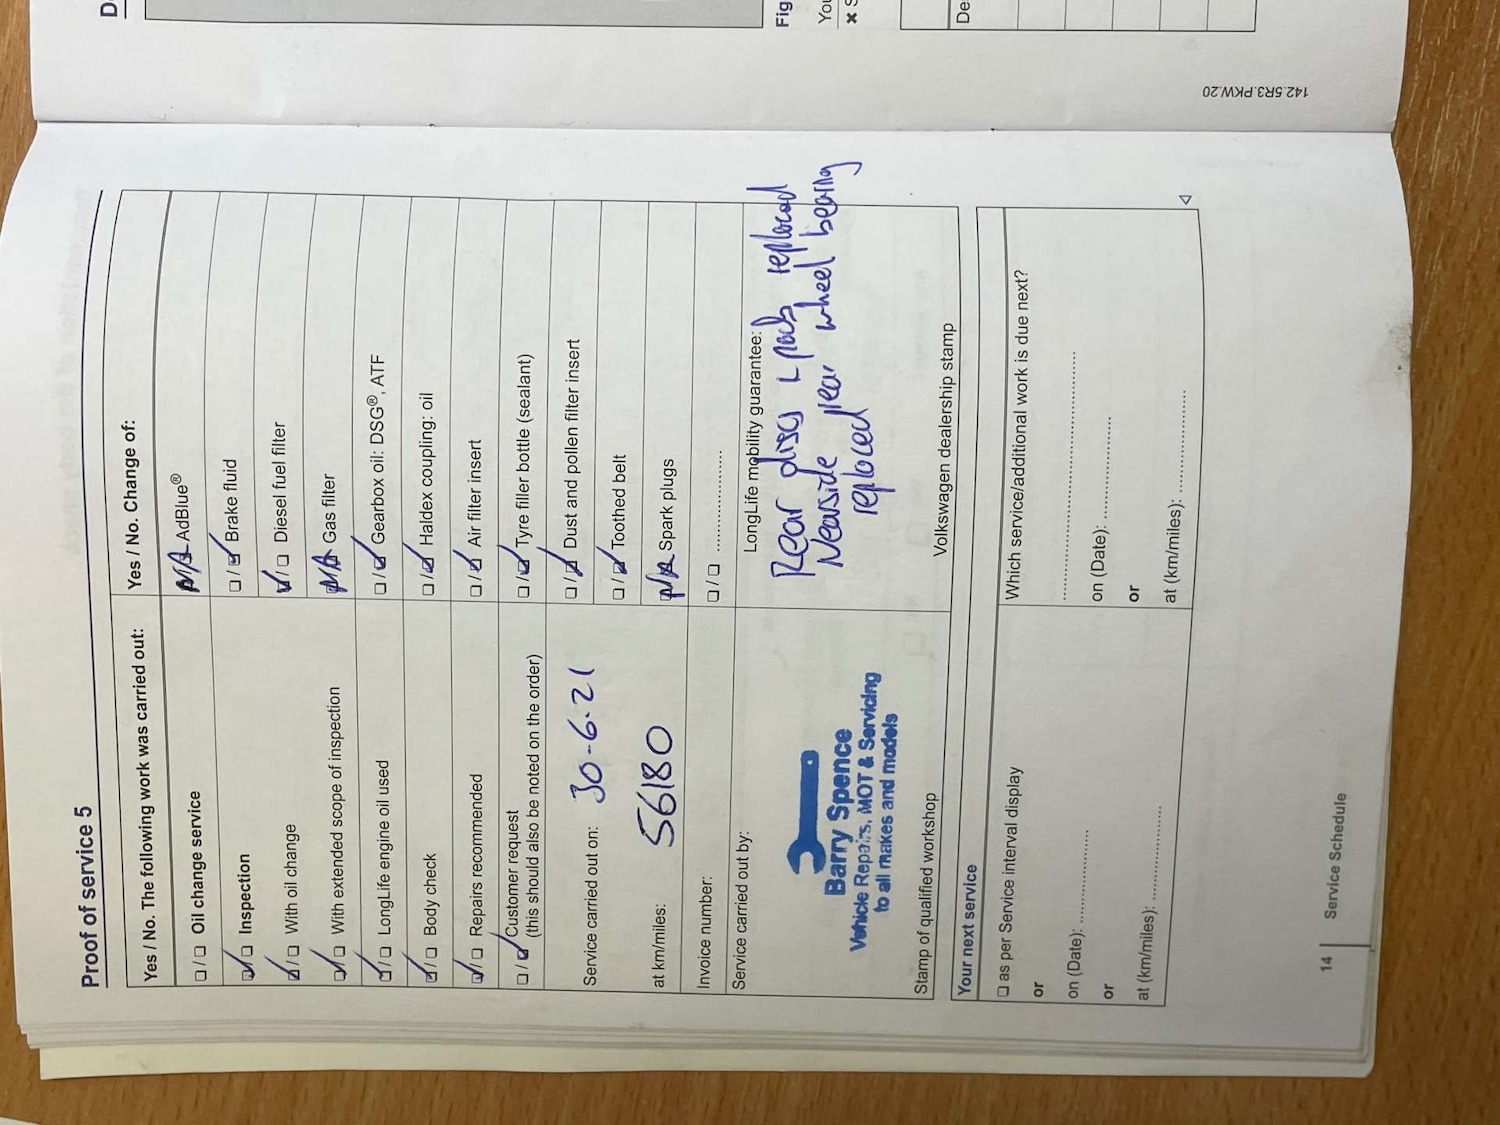 Proof of service 5
Yes / No. The following work was carried out:
☐ / ☐ Oil change service
☑ / ☐ Inspection
☑ / ☐ With oil change
☑ / ☐ With extended scope of inspection
☑ / ☐ LongLife engine oil used
☑ / ☐ Body check
☑ / ☐ Repairs recommended
☐ / ☑ Customer request
(this should also be noted on the order)
Service carried out on: 30-6-21
at km/miles: 56180
Invoice number:
Service carried out by:
Barry Spence
Vehicle Repairs, MOT & Servicing
to all makes and models
Stamp of qualified workshop
Yes / No. Change of:
N/A AdBlue®
☐ / ☑ Brake fluid
☑ / ☐ Diesel fuel filter
N/A Gas filter
☐ / ☑ Gearbox oil: DSG®, ATF
☐ / ☑ Haldex coupling: oil
☐ / ☑ Air filter insert
☐ / ☑ Tyre filler bottle (sealant)
☐ / ☑ Dust and pollen filter insert
☐ / ☑ Toothed belt
N/A Spark plugs
☐ / ☐ ....................
LongLife mobility guarantee:
Rear discs & pads replaced
Nearside rear wheel bearing
replaced
Volkswagen dealership stamp
Your next service
☐ as per Service interval display
or
on (Date): ....................
or
at (km/miles): ....................
Which service/additional work is due next?
................................................
on (Date): ....................
or
at (km/miles): ....................
14
Service Schedule
142.5R3.PKW.20
D
Fig
You
✖ S
De